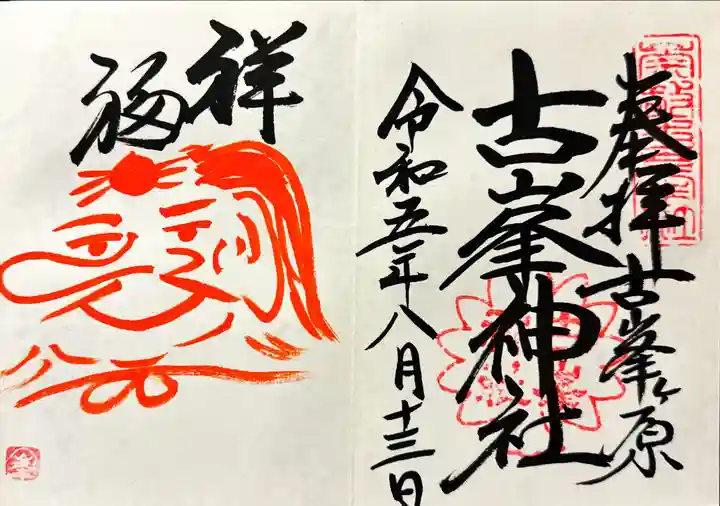 奉拝
古峯ヶ原
古峯神社
令和五年八月十三日
祥福